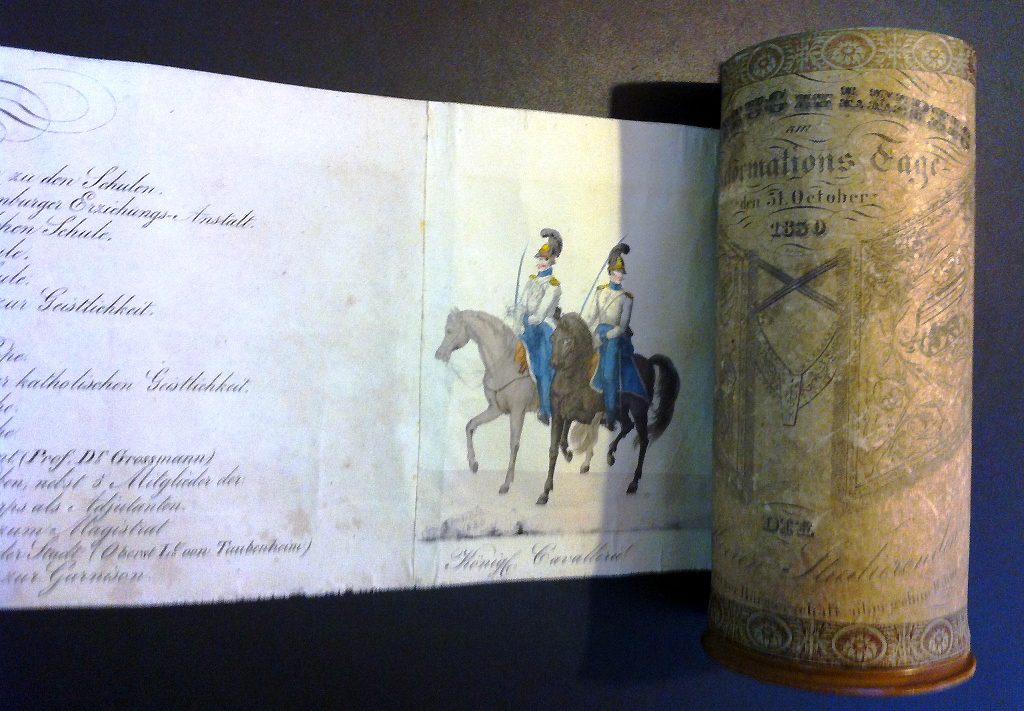 zu den Schulen.
nburger Erziehungs-Anstalt.
chen Schule.
ule.
ule.
zur Geistlichkeit.
r katholischen Geistlichkeit.
nt (Prof. Dr Grossmann)
ben, nebst 3 Mitglieder der
rps als Adjutanten.
zum Magistrat
der Stadt (Oberst Lt. von Taubenheim)
zur Garnison
Königl. Cavallerie
am
formations Tage
den 31. October
1830
DER